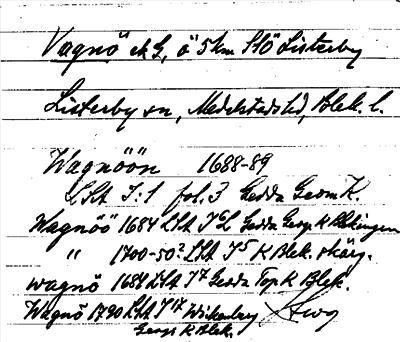 Vagnö ek G, ö 5 km SSÖ Listerby
Listerby sn, Medelstads hd, Blek. l.
Wagnöön 1688-89
LSA I:1 fol. 3 Gedda Geom K.
Wagnöö 1684 LSA Gedda Geogr K Blekingen
" 1700-50? LSA K Blek. skärg.
wagnö 1684 LSA Gedda Top K Blek.
Wagnö 1790 LSA Wickenberg
Geogr K Blek.